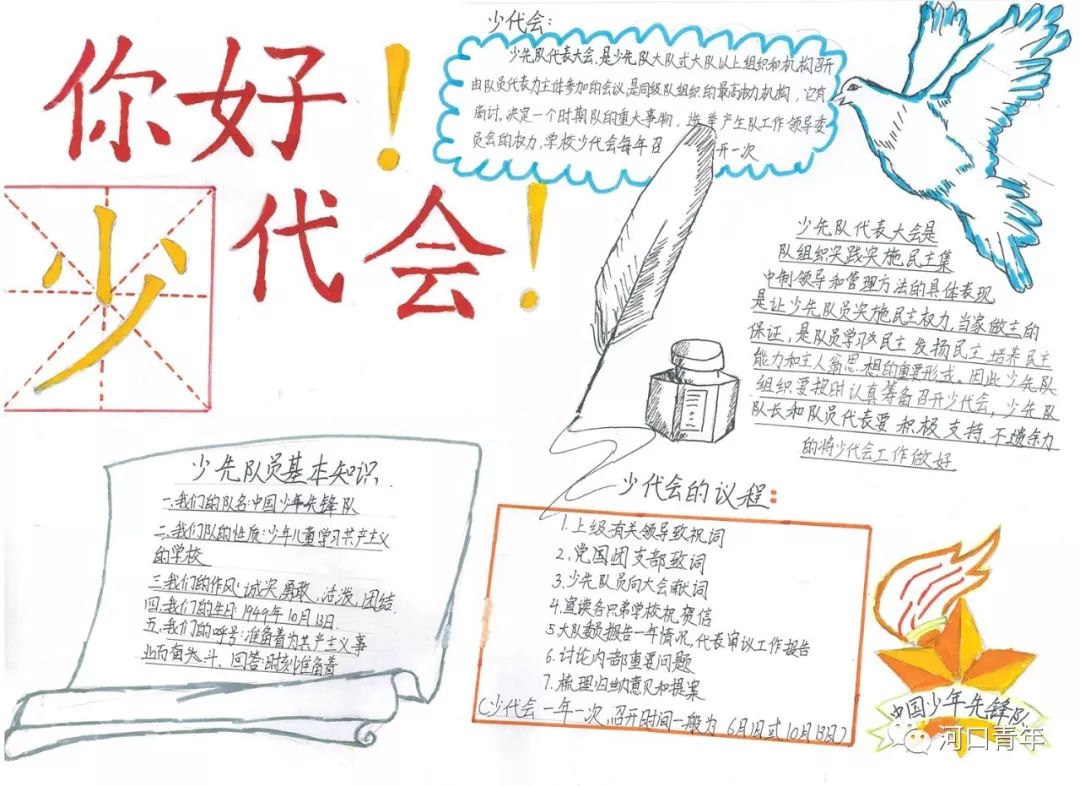 你好!
少代会!
少代会:
少先队代表大会,是少先队大队或大队以上组织和机构召开
由队员代表为主体参加的会议,是同级队组织的最高权力机构,它有
商讨、决定一个时期队的重大事物,选举产生队工作领导委
员会的权力,学校少代会每年召开一次
少先队代表大会是
队组织实践实施民主集
中制领导和管理方法的具体表现
是让少先队员实施民主权力,当家做主的
保证,是队员学习民主 发扬民主 培养民主
能力和主人翁思想的重要形式。因此少先队
组织要按时认真筹备召开少代会,少先队
队长和队员代表要积极支持,不遗余力
的将少代会工作做好
少先队员基本知识
一、我们的队名:中国少年先锋队
二、我们队的性质:少年儿童学习共产主义
的学校
三、我们的作风:诚实,勇敢,活泼,团结.
四、我们的生日:1949年10月13日.
五、我们的呼号:准备着为共产主义事
业而奋斗、回答:时刻准备着
少代会的议程:
1.上级有关领导致祝词
2,党国团支部致词
3,少先队员向大会献词
4.宣读各兄弟学校祝贺信
5大队委员报告一年情况,代表审议工作报告
6.讨论内部重要问题
7.梳理归纳意见和提案
(少代会一年一次,召开时间一般为6月1日或10月13日)
中国少年先锋队
河口青年